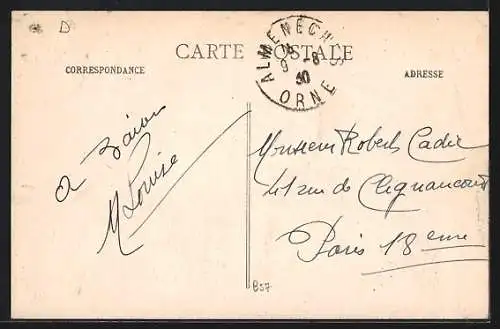 D
CARTE POSTALE
CORRESPONDANCE
ADRESSE
ALMENÊCHES
9 -8
30
ORNE
M Louise
Monsieur Roberts Cadic
41 rue de Clignancourt
Paris 18eme
B57